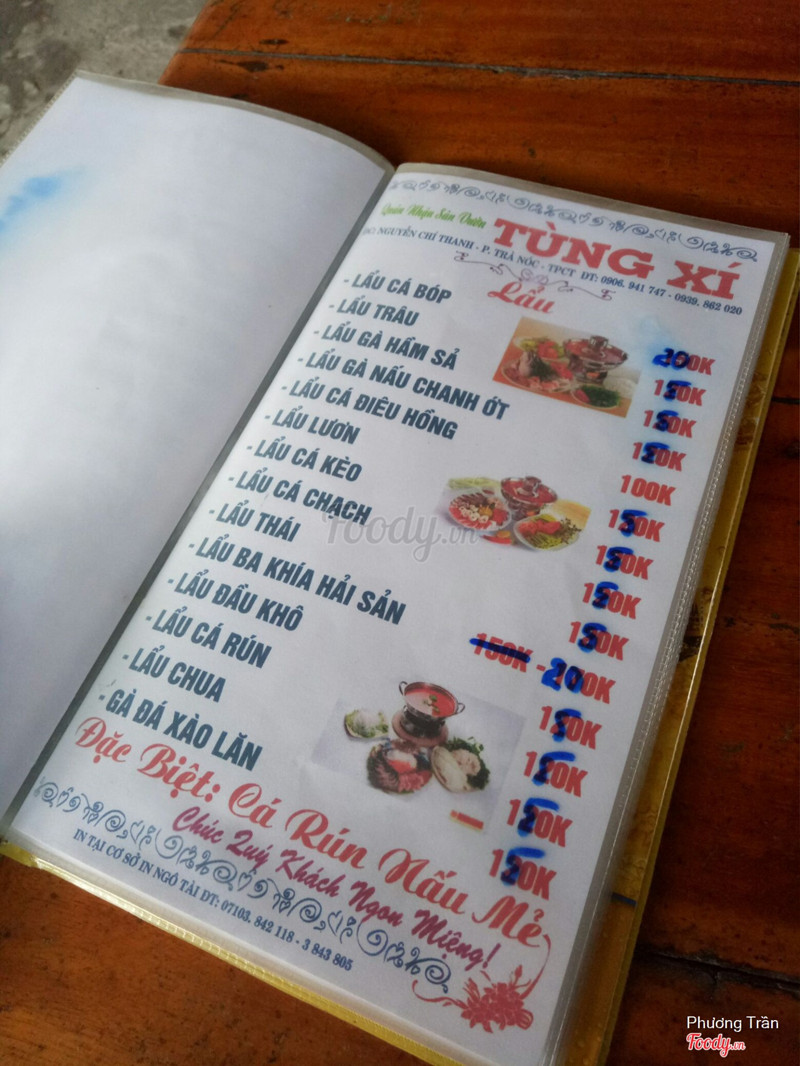 Quán Nhậu Sân Vườn
TÙNG XÍ
ĐC: NGUYỄN CHÍ THANH - P. TRÀ NÓC - TPCT ĐT: 0906. 941 747 - 0939. 862 020
Lẩu
- LẨU CÁ BÓP 200K
- LẨU TRÂU 150K
- LẨU GÀ HẦM SẢ 150K
- LẨU GÀ NẤU CHANH ỚT 120K
- LẨU CÁ ĐIÊU HỒNG 100K
- LẨU LƯƠN 150K
- LẨU CÁ KÈO 150K
- LẨU CÁ CHẠCH 150K
- LẨU THÁI 150K
- LẨU BA KHÍA HẢI SẢN 150K - 200K
- LẨU ĐẦU KHÔ 150K
- LẨU CÁ RÚN 150K
- LẨU CHUA 150K
- GÀ ĐÁ XÀO LĂN 150K
Đặc Biệt: Cá Rún Nấu Mẻ
Chúc Quý Khách Ngon Miệng!
IN TẠI CƠ SỞ IN NGÔ TÀI ĐT: 07103. 842 118 - 3 843 805
Foody.vn
Phương Trần
Foody.vn